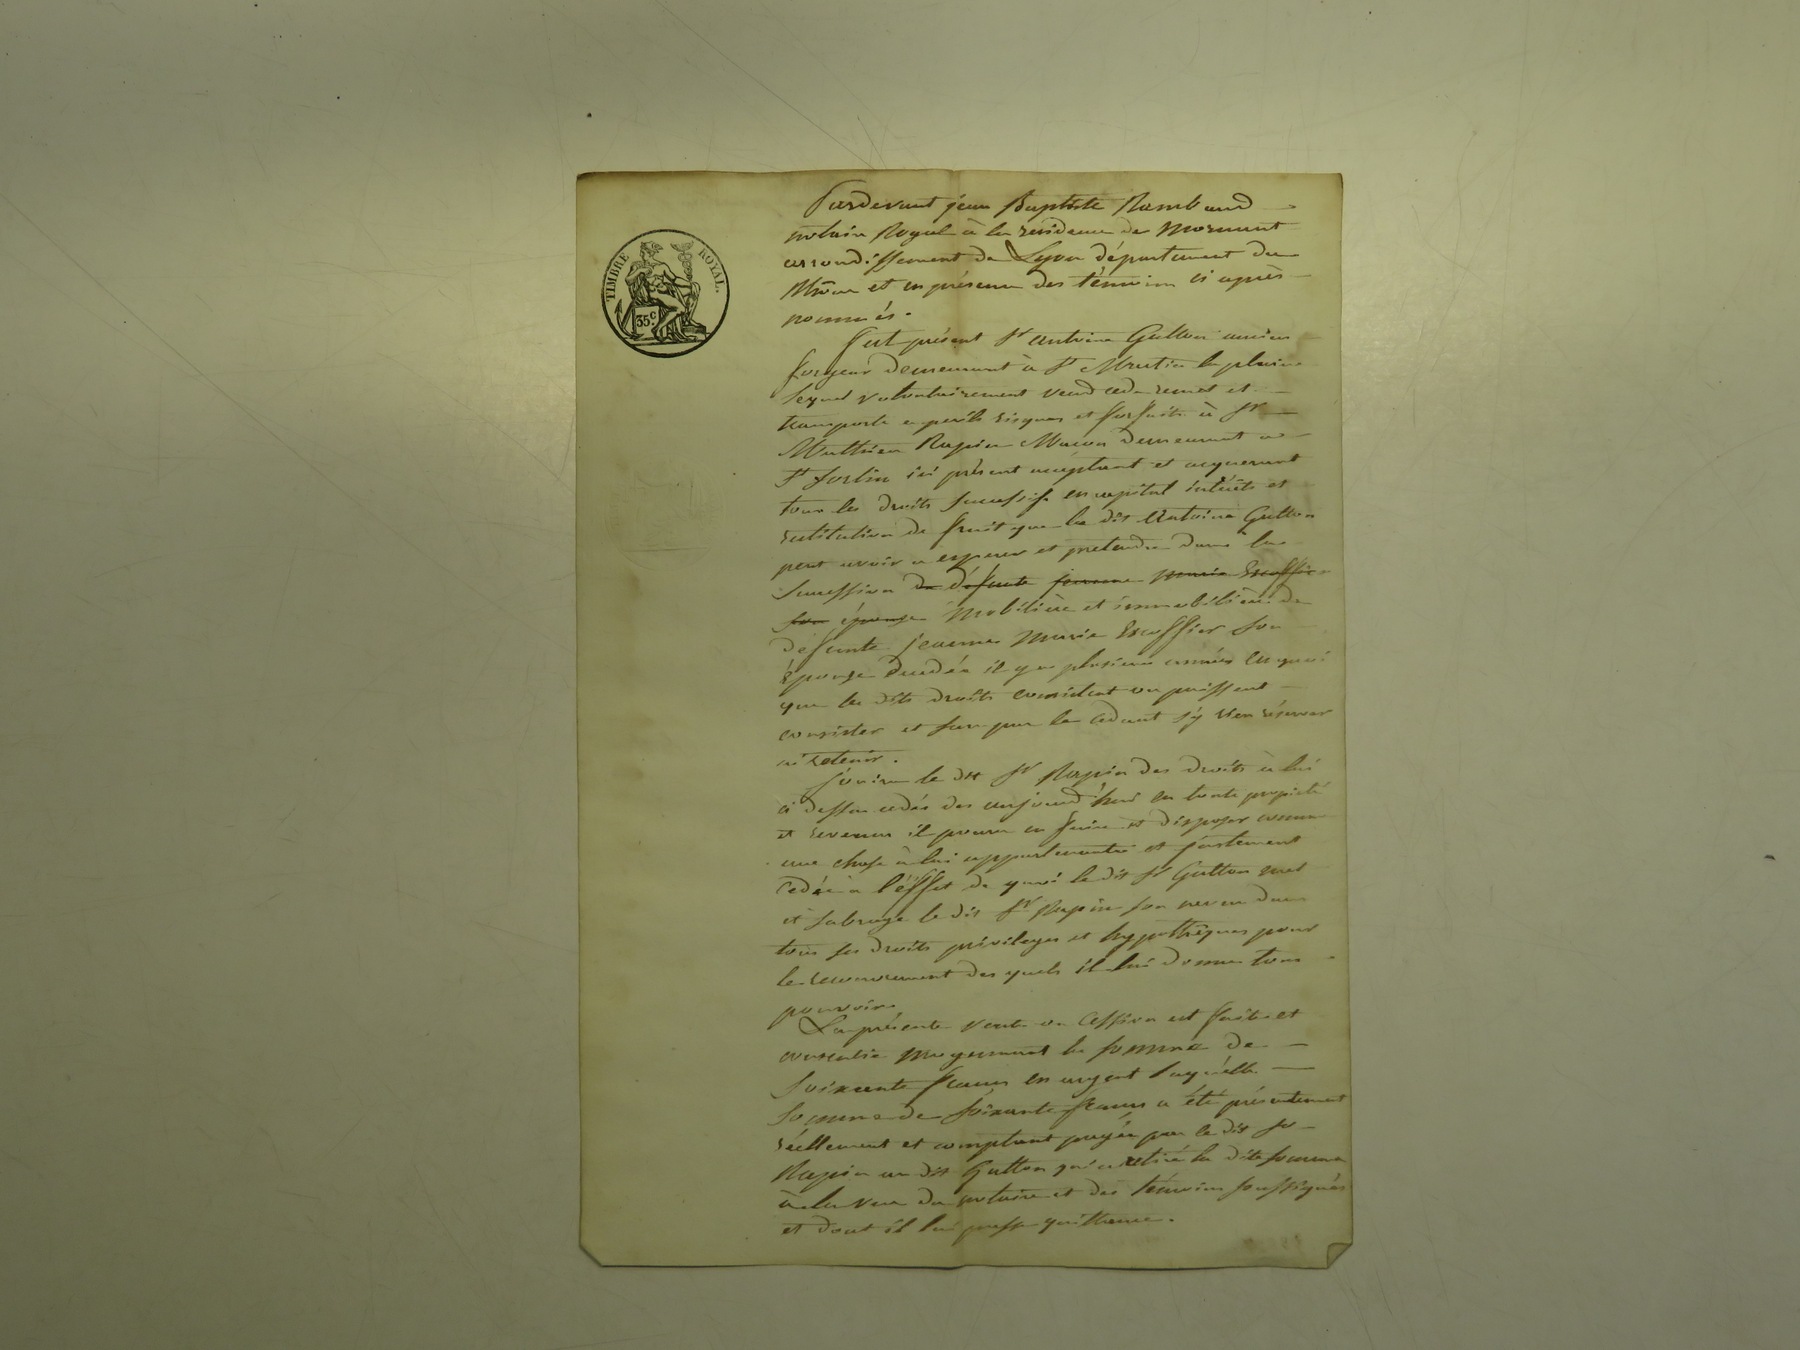 TIMBRE ROYAL.
35 c.
Pardevant jean Baptiste Rambaud
notaire Royal à la residence de Mornant
arrondissement de Lyon département du
Rhône et en présence des témoins ci après
nommés.
fut présent Sr antoine Gutton ancien
forgeur demeurant à St Martin la plaine
lequel volontairement vend cede remet et
transporte a perils risques et forfaits à Sr
Mathieu Rapin Macon demeurant a
St Sorlin ici présent acceptant et acquerant
tous les droits successifs en capital intérêts et
restitution de fruit que le dit Antoine Gutton
peut avoir a esperer et pretendre dans la
succession de défunte jeanne Marie Escoffier
son épouse Mobilière et immobilière de
défunte jeanne Marie Escoffier son
épouse decedée il y a plusieurs années en quoi
que les dits droits consistent ou puissent
consister et sans que le cedant s'y rien réserver
ni retenir.
Jouira le dit Sr Rapin des droits à lui
ci dessus cedés des aujourd'hui en toute propieté
et revenus il pourra en faire et disposer comme
une chose à lui appartenante et justement
cedée a l'éffet de quoi le dit Sr Gutton met
et subroge le dit Sr Rapin son neveu dans
tous ses droits privileges et hypothèques pour
le recouvrement des quels il lui donne tous
pouvoirs
La présente vente ou Cession est faite et
consentie moyennant la somme de
Soixante francs en argent laquelle
somme de soixante francs a été présentement
réellement et comptant payée par le dit Sr
Rapin au dit Gutton qui a retiré la dite somme
à la vue du notaire et des témoins soussignés
et dont il lui passe quittance.